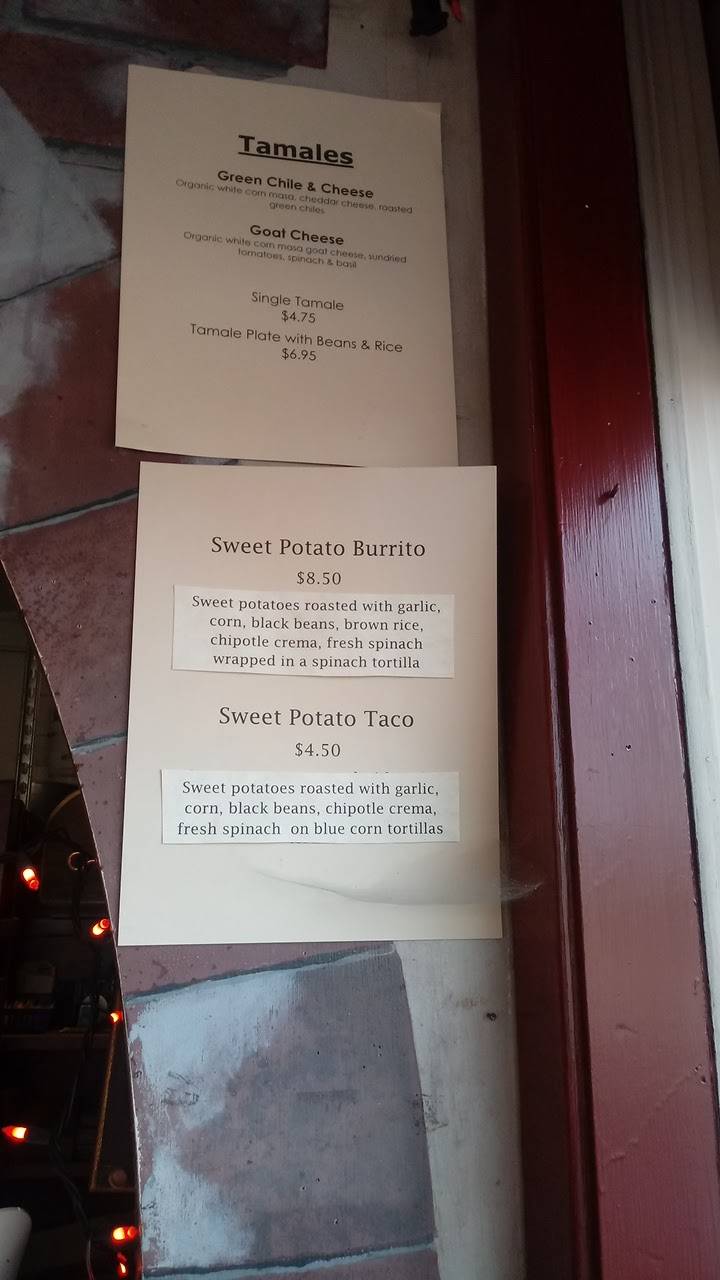 Tamales
Green Chile & Cheese
Organic white corn masa, cheddar cheese, roasted
green chiles
Goat Cheese
Organic white corn masa goat cheese, sundried
tomatoes, spinach & basil
Single Tamale
$4.75
Tamale Plate with Beans & Rice
$6.95
Sweet Potato Burrito
$8.50
Sweet potatoes roasted with garlic,
corn, black beans, brown rice,
chipotle crema, fresh spinach
wrapped in a spinach tortilla
Sweet Potato Taco
$4.50
Sweet potatoes roasted with garlic,
corn, black beans, chipotle crema,
fresh spinach on blue corn tortillas